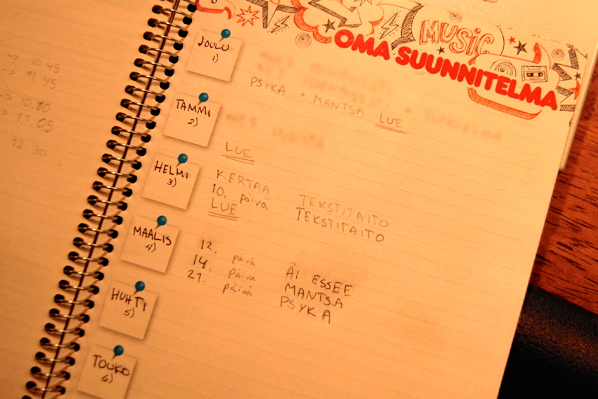 MUSIC
OMA SUUNNITELMA
JOULU
1)
PSYKA + MANTSA LUE
TAMMI
2)
LUE
HELMI
3)
KERTAA TEKSTITAITO
10. päivä TEKSTITAITO
LUE
MAALIS
4)
12. päivä ÄI ESSEE
14. päivä MANTSA
21. päivä PSYKA
HUHTI
5)
TOUKO
6)
-> 10.45
-> 11.45
10.10
-> 11.05
12.30